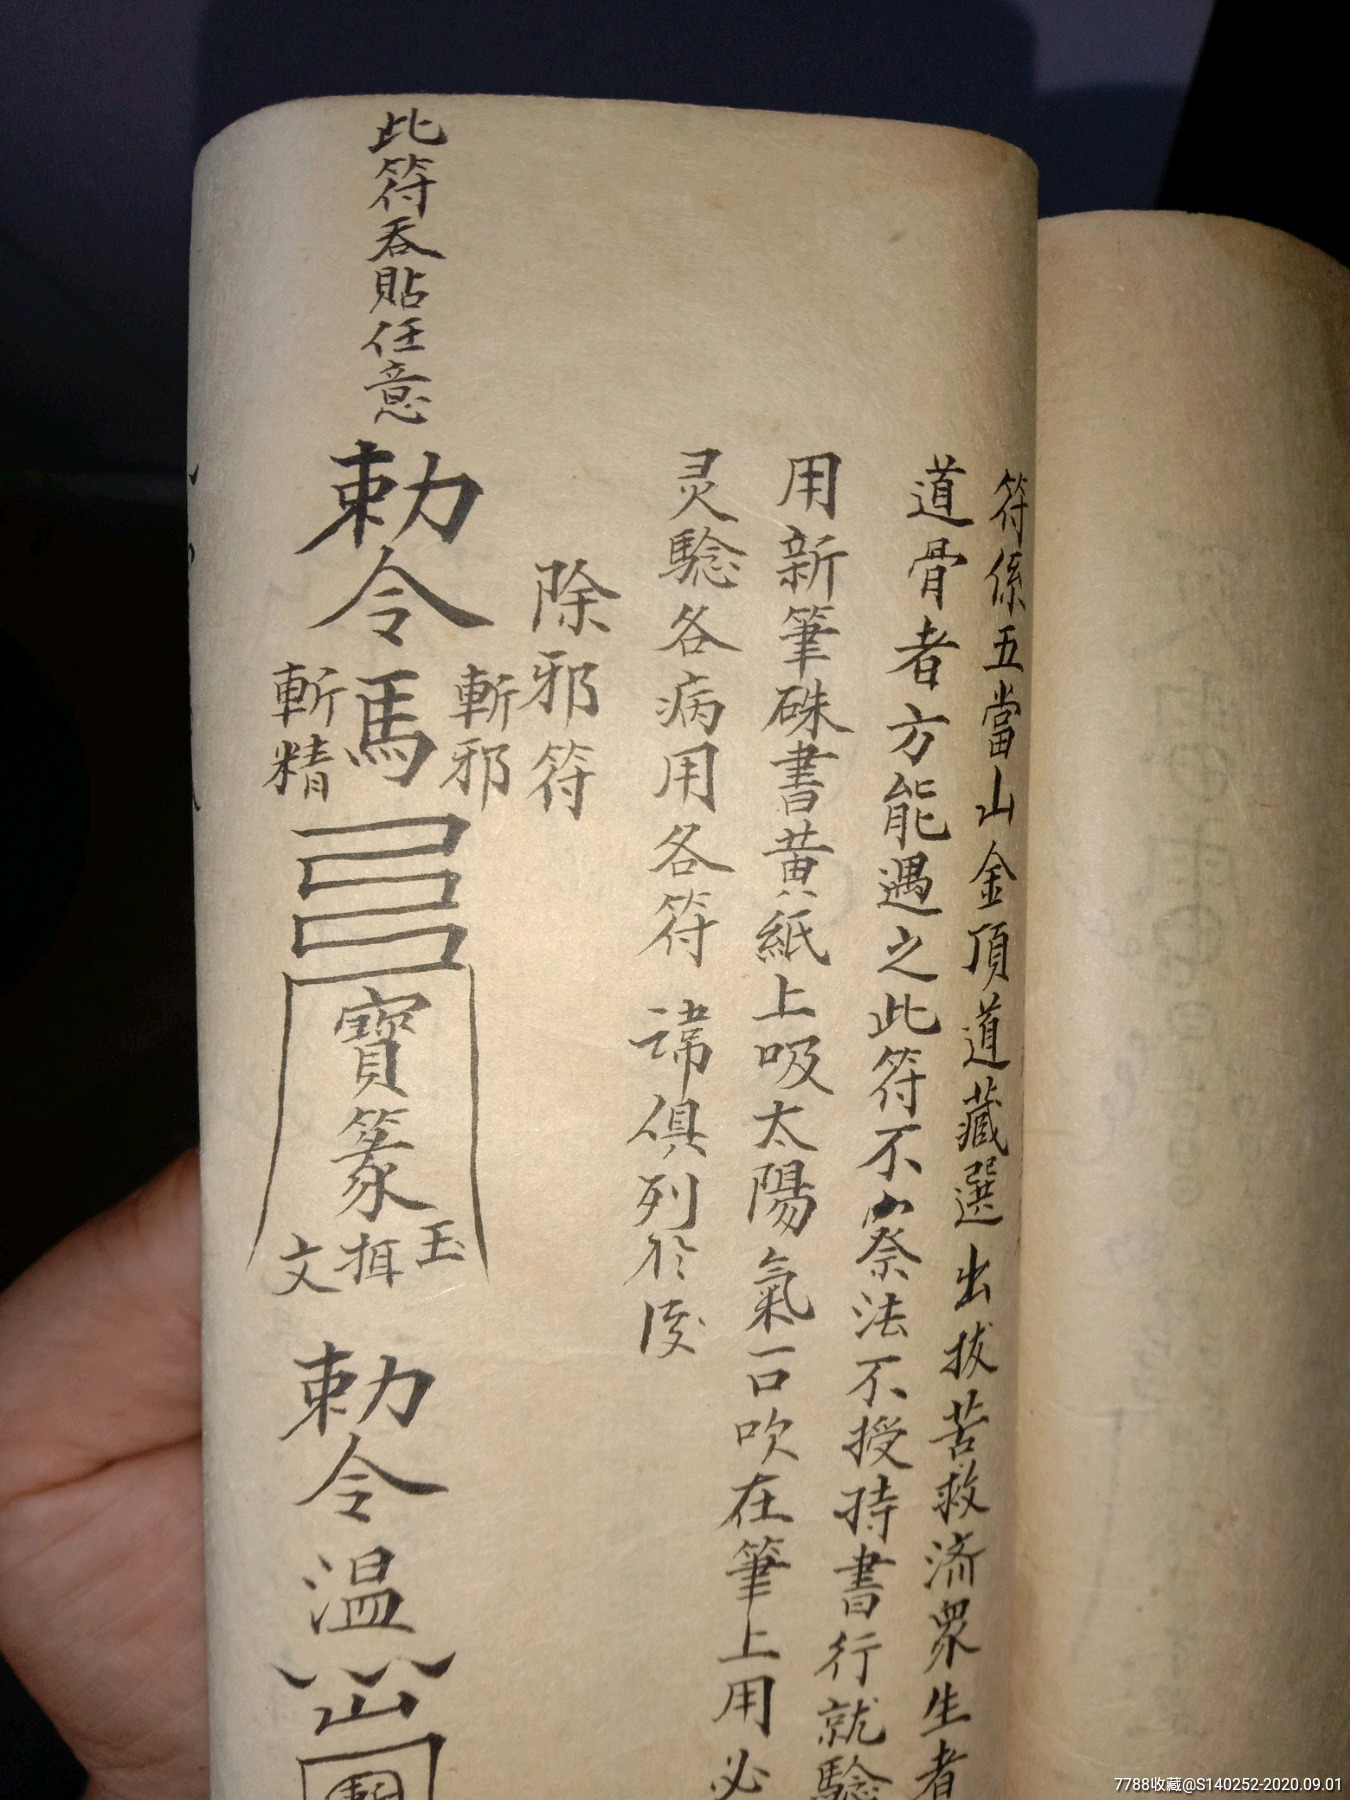 符係五當山金頂道藏選出拔苦救济眾生者
道骨者方能遇之此符不察法不授持書行就驗
用新筆硃書黄紙上吸太陽氣一口吹在筆上用必
灵驗各病用各符 諱俱列於後
除邪符
此符吞貼任意
勅令馬
斬邪
斬精
寶篆
玉
文
勅令温
7788收藏@S140252-2020.09.01